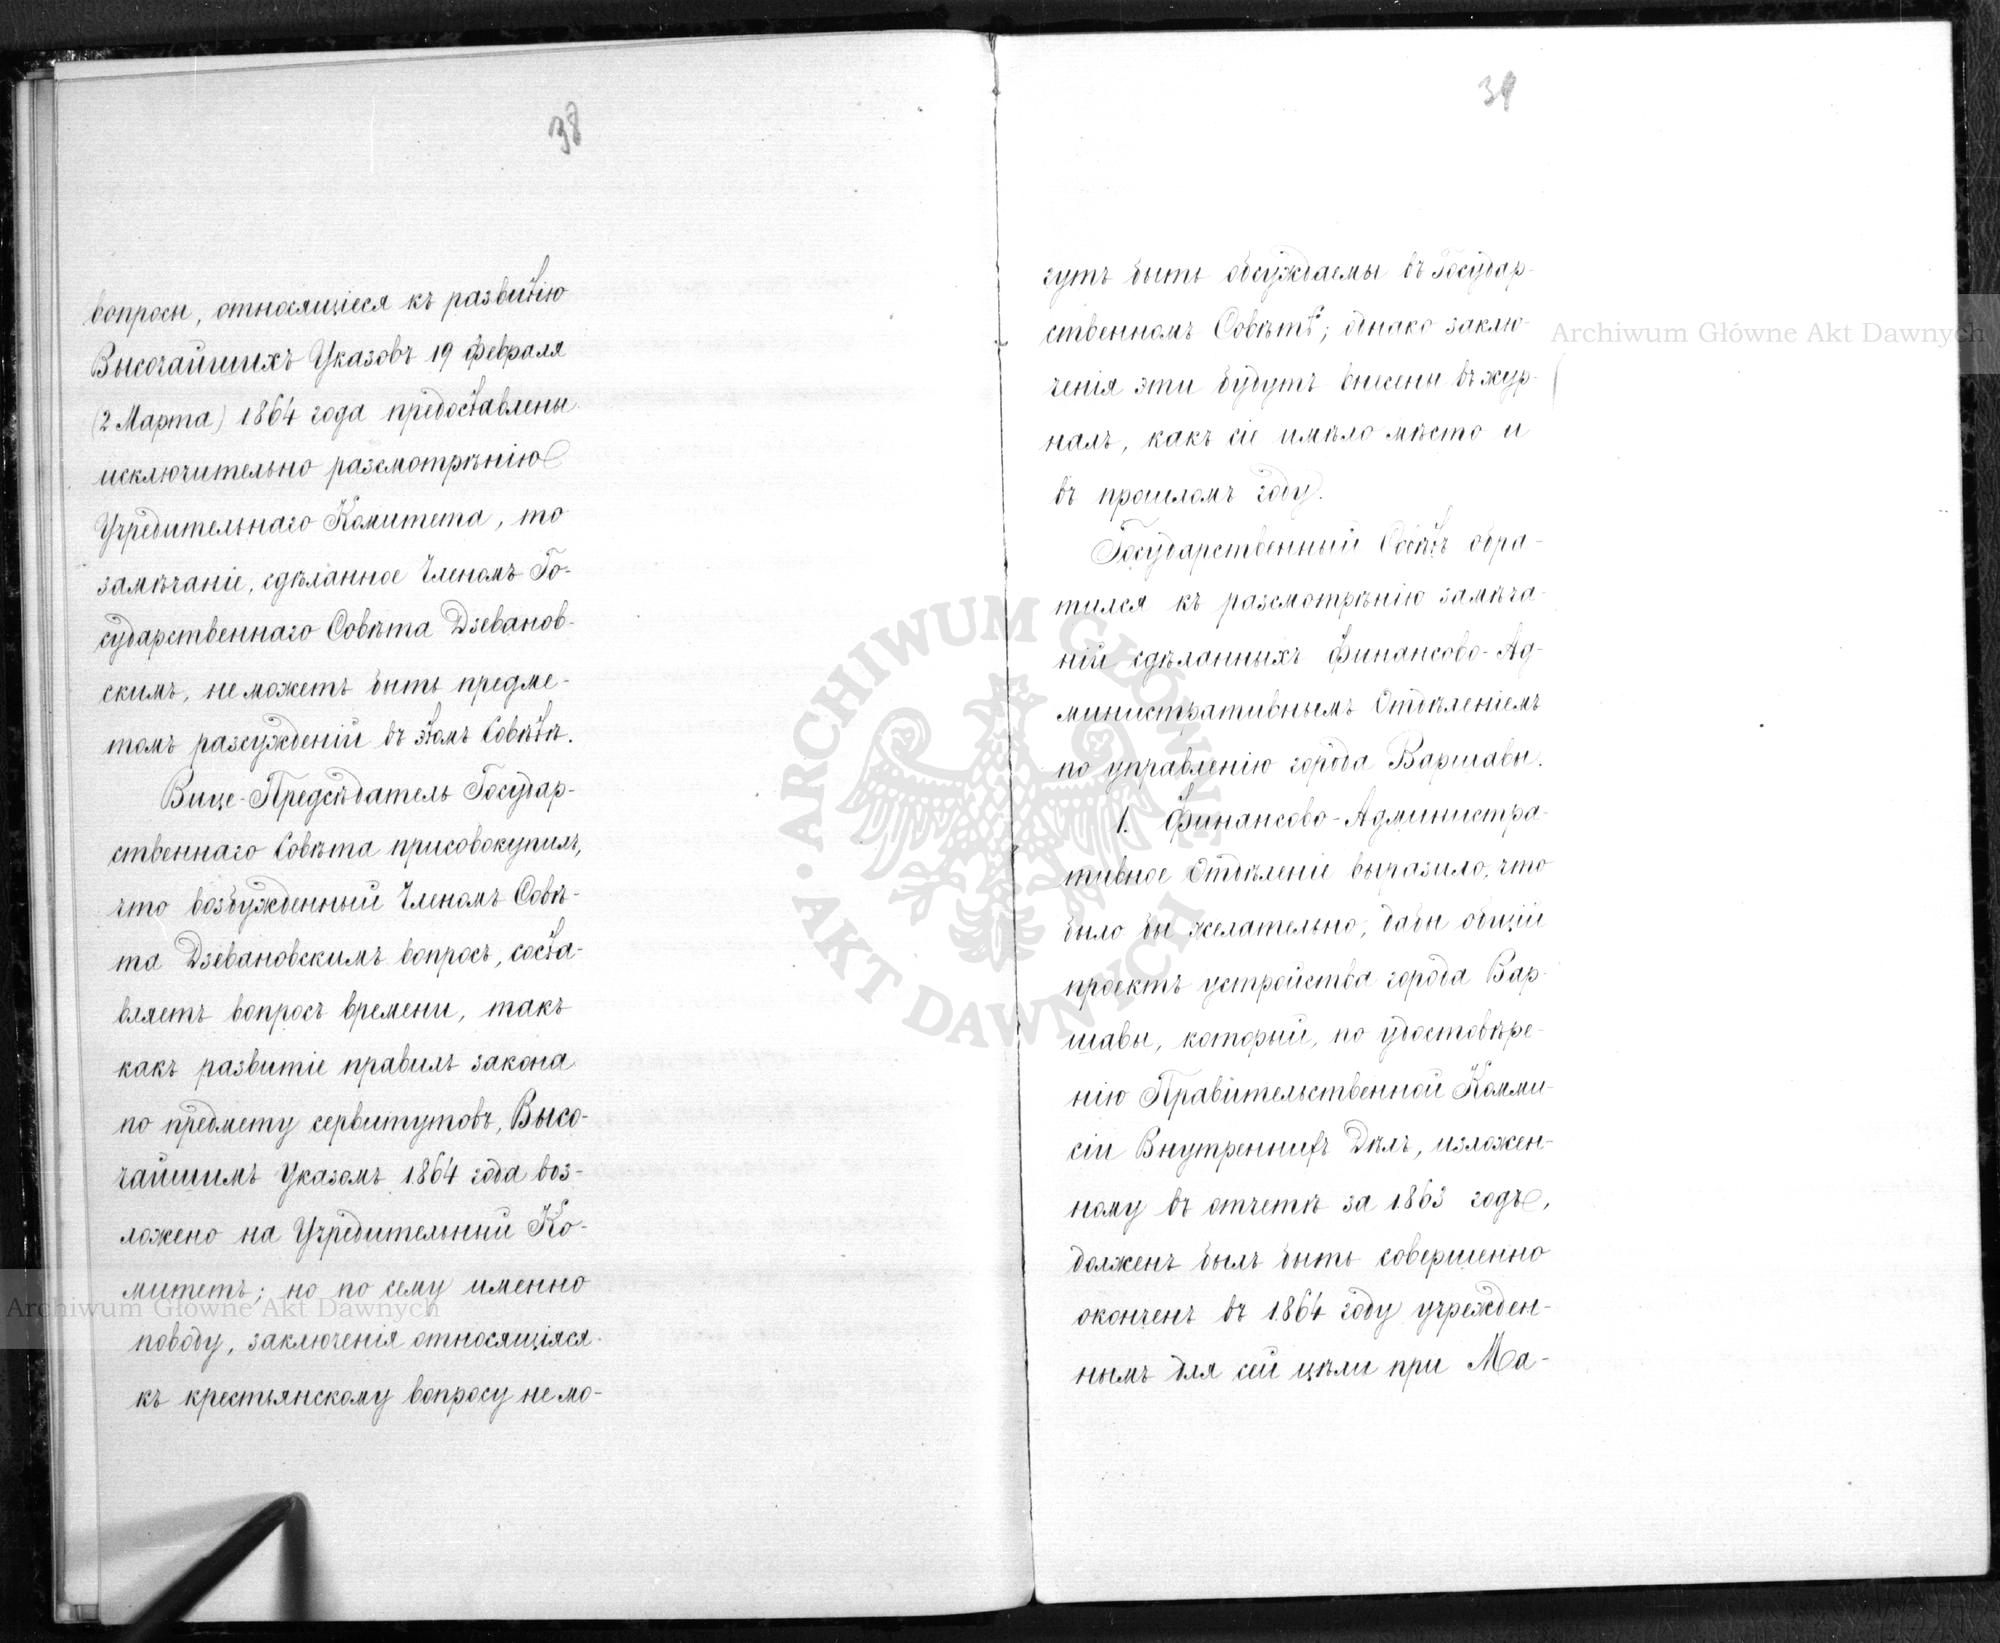 38
вопросы, относящіеся къ развитію
Высочайшихъ Указовъ 19 Февраля
(2 Марта) 1864 года предоставлены
исключительно разсмотрѣнію
Учредительнаго Комитета, то
замѣчаніе, сдѣланное Членомъ Го-
сударственнаго Совѣта Дзеванов-
скимъ, не можетъ быть предме-
томъ разсужденій въ этомъ Совѣтѣ.
Вице-Предсѣдатель Государ-
ственнаго Совѣта присовокупилъ,
что возбужденный Членомъ Совѣ-
та Дзевановскимъ вопросъ, соста-
вляетъ вопросъ времени, такъ
какъ развитіе правилъ закона
по предмету сервитутовъ, Высо-
чайшимъ Указомъ 1864 года воз-
ложено на Учредительный Ко-
митетъ; но по сему именно
поводу, заключенія относящіяся
къ крестьянскому вопросу не мо-
39
гутъ быть обсуждаемы въ Государ-
ственномъ Совѣтѣ; однако заклю-
ченія эти будутъ внесены въ жур-
налъ, какъ сіе имѣло мѣсто и
въ прошломъ году.
Государственный Совѣтъ обра-
тился къ разсмотрѣнію замѣча-
ній сдѣланныхъ Финансово-Ад-
министративнымъ Отдѣленіемъ
по управленію города Варшавы.
1. Финансово-Администра-
тивное Отдѣленіе выразило, что
было бы желательно, дабы общій
проектъ устройства города Вар-
шавы, который, по удостовѣре-
нію Правительственной Комми-
сіи Внутреннихъ Дѣлъ, изложен-
ному въ отчетѣ за 1863 годъ,
долженъ былъ быть совершенно
оконченъ въ 1864 году учрежден-
нымъ для сей цѣли при Ма-
Archiwum Główne Akt Dawnych
Archiwum Główne Akt Dawnych
ARCHIWUM GŁÓWNE · AKT DAWNYCH ·